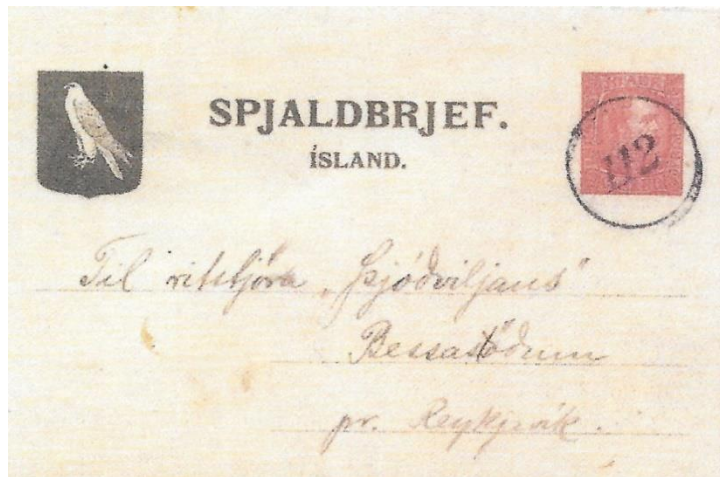 SPJALDBRJEF.
ÍSLAND.
112
Til ritstjóra „Þjóðviljans"
Bessastöðum
pr. Reykjavík.